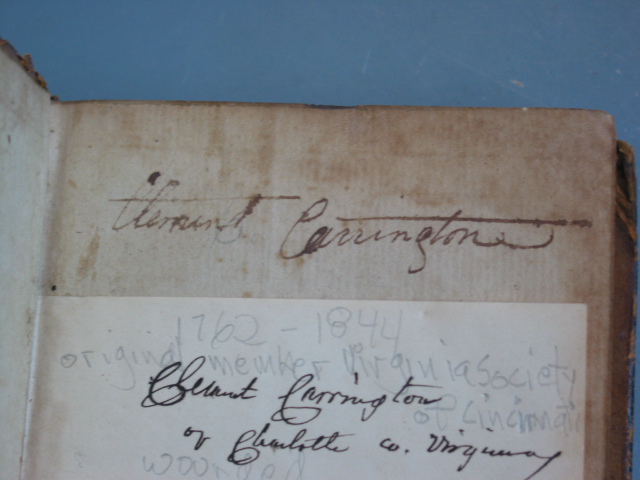 Clement Carrington
1762 - 1844
original memker Virginia Society
of Cincinnati
Clement Carrington
of Charlotte co. Virginia
wounded